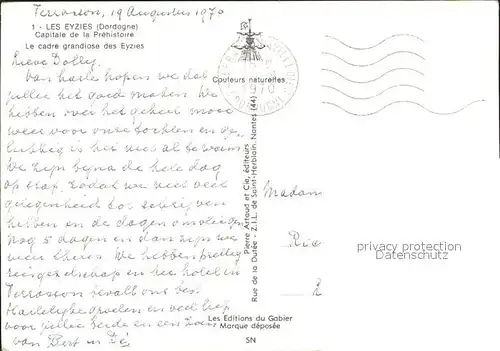 Terrasson, 19 Augustus 1970
1 - LES EYZIES (Dordogne)
Capitale de la Préhistoire
Le cadre grandiose des Eyzies
Lieve Dolly,
Van harte hopen we dat
jullie het goed maken. We
hebben over het geheel mooi
weer voor onze tochten en ge-
lukkig is het niet al te warm
We zijn bijna de hele dag
op stap, zodat we niet veel
gelegenheid tot schrijven
hebben en de dagen omvliegen
Nog 5 dagen en dan zijn we
weer thuis. We hebben prettig
reisgezelschap en het hotel in
Terrasson bevalt ons best
Hartelijke groeten en veel liefs
voor jullie beide en een zoen
van Bert en Dé
Couleurs naturelles
1970
Pierre Artaud et Cie, éditeurs
Rue de la Dutée - Z.I.L. de Saint-Herblain, Nantes (44)
Madam
Ria
privacy protection
Datenschutz
Les Editions du Gabier
Marque déposée
SN